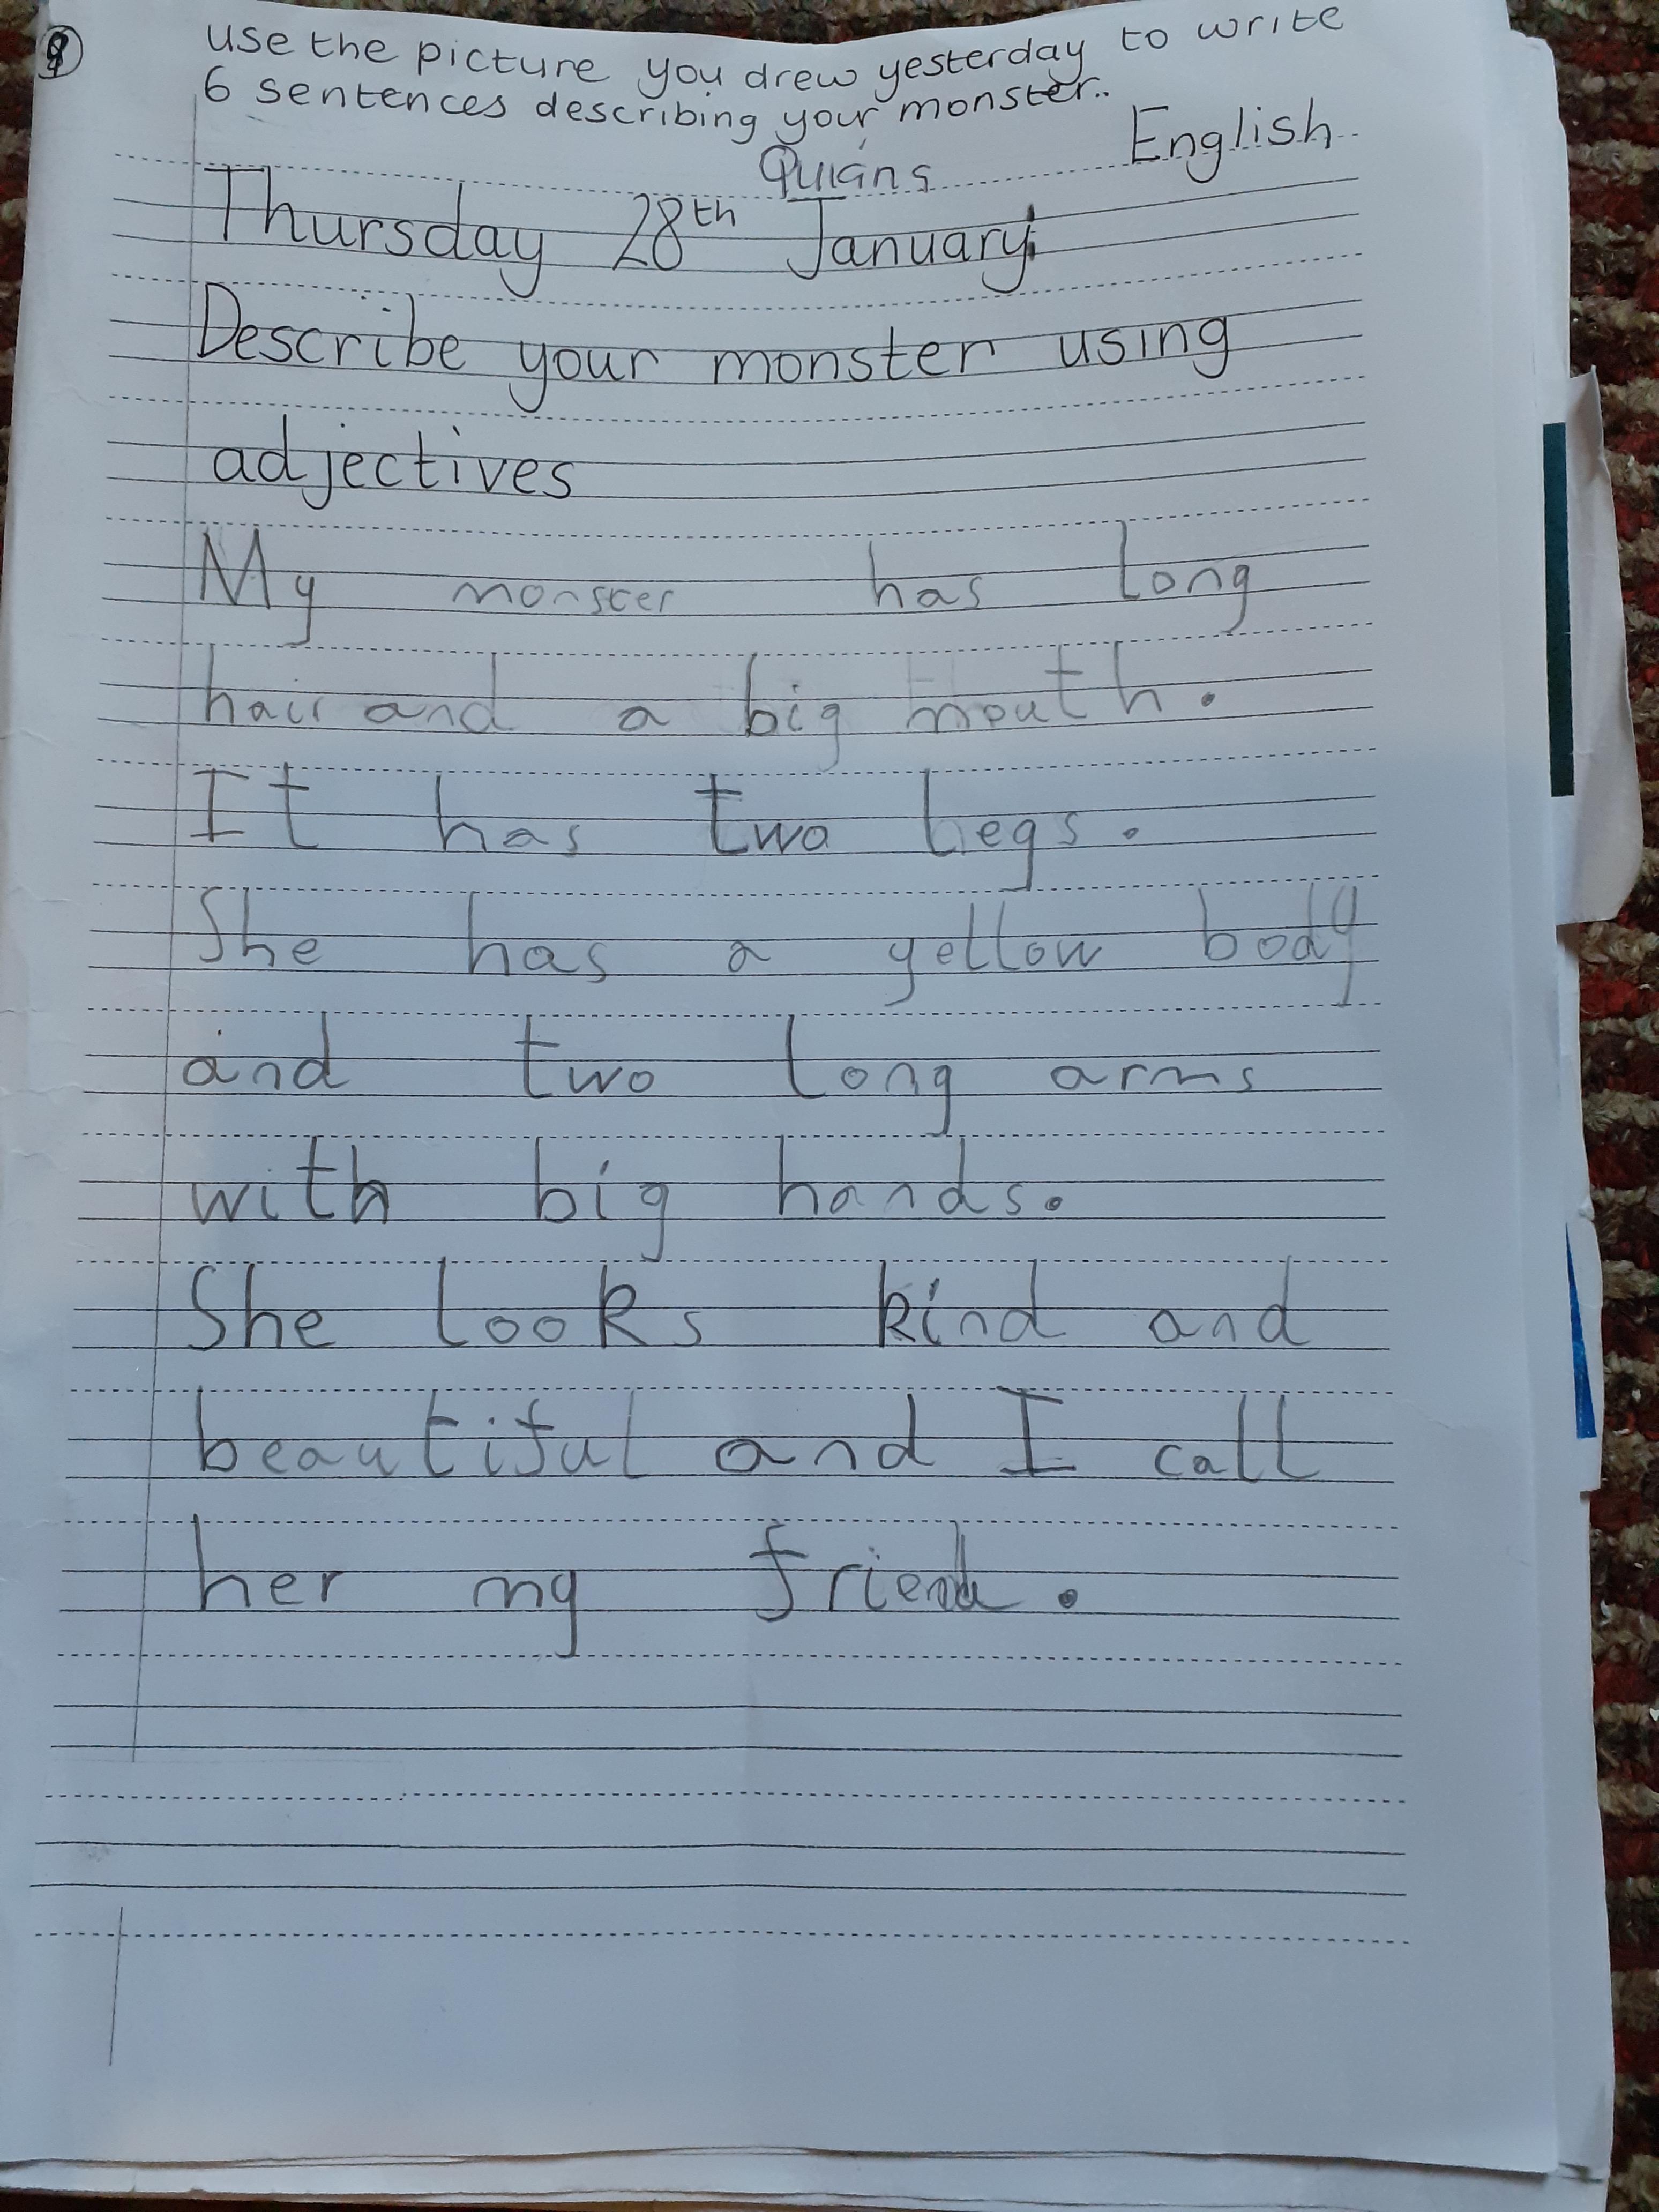 use the picture you drew yesterday to write
6 sentences describing your monster..
English
Thursday 28th January
Describe your monster using
adjectives
My monster has long
hair and a big mouth.
It has two legs.
She has a yellow body
and two long arms
with big hands.
She looks kind and
beautiful and I call
her my friend.